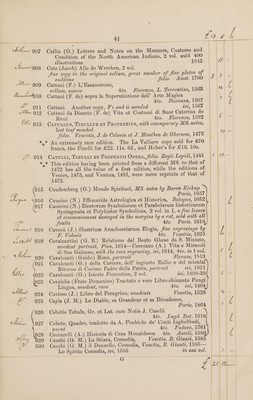 41
907 Catlin (G.) Letters and Notes on the Manners, Customs and
Condition of the North American Indians, 2 vol. with 400
illustrations 1842
908 Cats (Jacob) Alle de Wercken, 2 vol.
fine copy in the original vellum, great number of fine plates of
emblems folio. Amst. 1700
909 Cattani (F.) L'Essamerone,
vellum, scarce 4to. Fiorenza, L. Torrentino, 1563
910 Cattani (F. de) sopra la Superstizione dell' Arte Magica
4to. Fiorenza, 1567
911 Cattani. Another copy, F. and G. mended ivi, 1567
912 Cattani da Diaceto (F. de) Vita et Costumi di Suor Caterina de
Ricci 4to. Fiorenza, 1592
913 CATULLUS, TIBULLUS ET PROPERTIUS, with contemporary MS. notes,
last leaf mended
folio. Venetiis, J. de Colonia et J. Manthen de Gherrem, 1475
*** An extremely rare edition. The La Valliere copy sold for 670
francs, the Pinelli for £22. 11s. 6d., and Heber's for £16. 10s.
914 CATULLI, TIBULLI ET PROPERTII OPERA, folio. Regii Lepidi, 1481
*** This edition having been printed from a different MS. to that of
1472 has all the value of a first edition, while the editions of
Venice, 1475, and Vicenza, 1481, were mere reprints of that of
1472.
915 Caudemberg (G.) Monde Spirituel, MS. notes by Baron Kirkup
Paris, 1857
916 Caussino (N.) Effemeride Astrologica et Historica, Bologna, 1652
917 Caussini (N.) Electorum Symbolorum et Parabolarum historicarum
Syntagmata et Polyhistor Symbolicus, 2 vol. in 1, a few leaves
of commencement damaged in the margins by a rat, sold with all
faults 4to. Paris. 1618
918 Cavacii (J.) illustrium Anachoretarum Elogia, fine engravings by
F. Valesio 4to. Venetiis, 1625
919 Cavalcantini (G. B.) Relatione del Santo Gheso de S. Miniato,
woodcut portrait, Pisa, 1614—Carcano (A.) Vita e Miracoli
di San Galeano, with the rare engraving, ivi, 1614, 4to. in 1 vol.
920 Cavalcanti (Guido) Rime, portrait Firenze, 1813
921 Cavalcanti (G.) della Carcere, dell' ingiusto Esilio e del trionfal
Ritorno di Cosimo Padre della Patria, portrait 1821
922 Cavalcanti (G.) Istorie Fiorentine, 2 vol. ivi, 1838-39
923 Cavalcha (Frate Domenico) Tractato o vero Libro chiamato Pungi
Lingua, woodcut, rare 4to. ivi, 1494
924 Caviceo (J.) Libro del Peregrino, woodcuts Venetia, 1526
925 Cayla (J. M.) Le Diable, sa Grandeur et sa Décadence,
Paris, 1864
926 Cebetis Tabula, Gr. et Lat. cum Notis J. Caselii
4to. Lugd. Bat. 1618
927 Cebete, Quadro, tradotto da A. Pimbiolo de' Conti Inghelfredi,
uncut 4to. Padova, 1761
928 Ceccarelli (A.) Historia di Casa Monaldesca 4to. Ascoli, 1580
929 Cecchi (G. M.) La Stiava, Comedia, Venetia, B. Giunti, 1585
930 Cecchi (G. M.) il Donzello, Comedia, Venetia, B. Giunti, 1585—
Lo Spirito Comedia, ivi, 1585 in one vol.
G